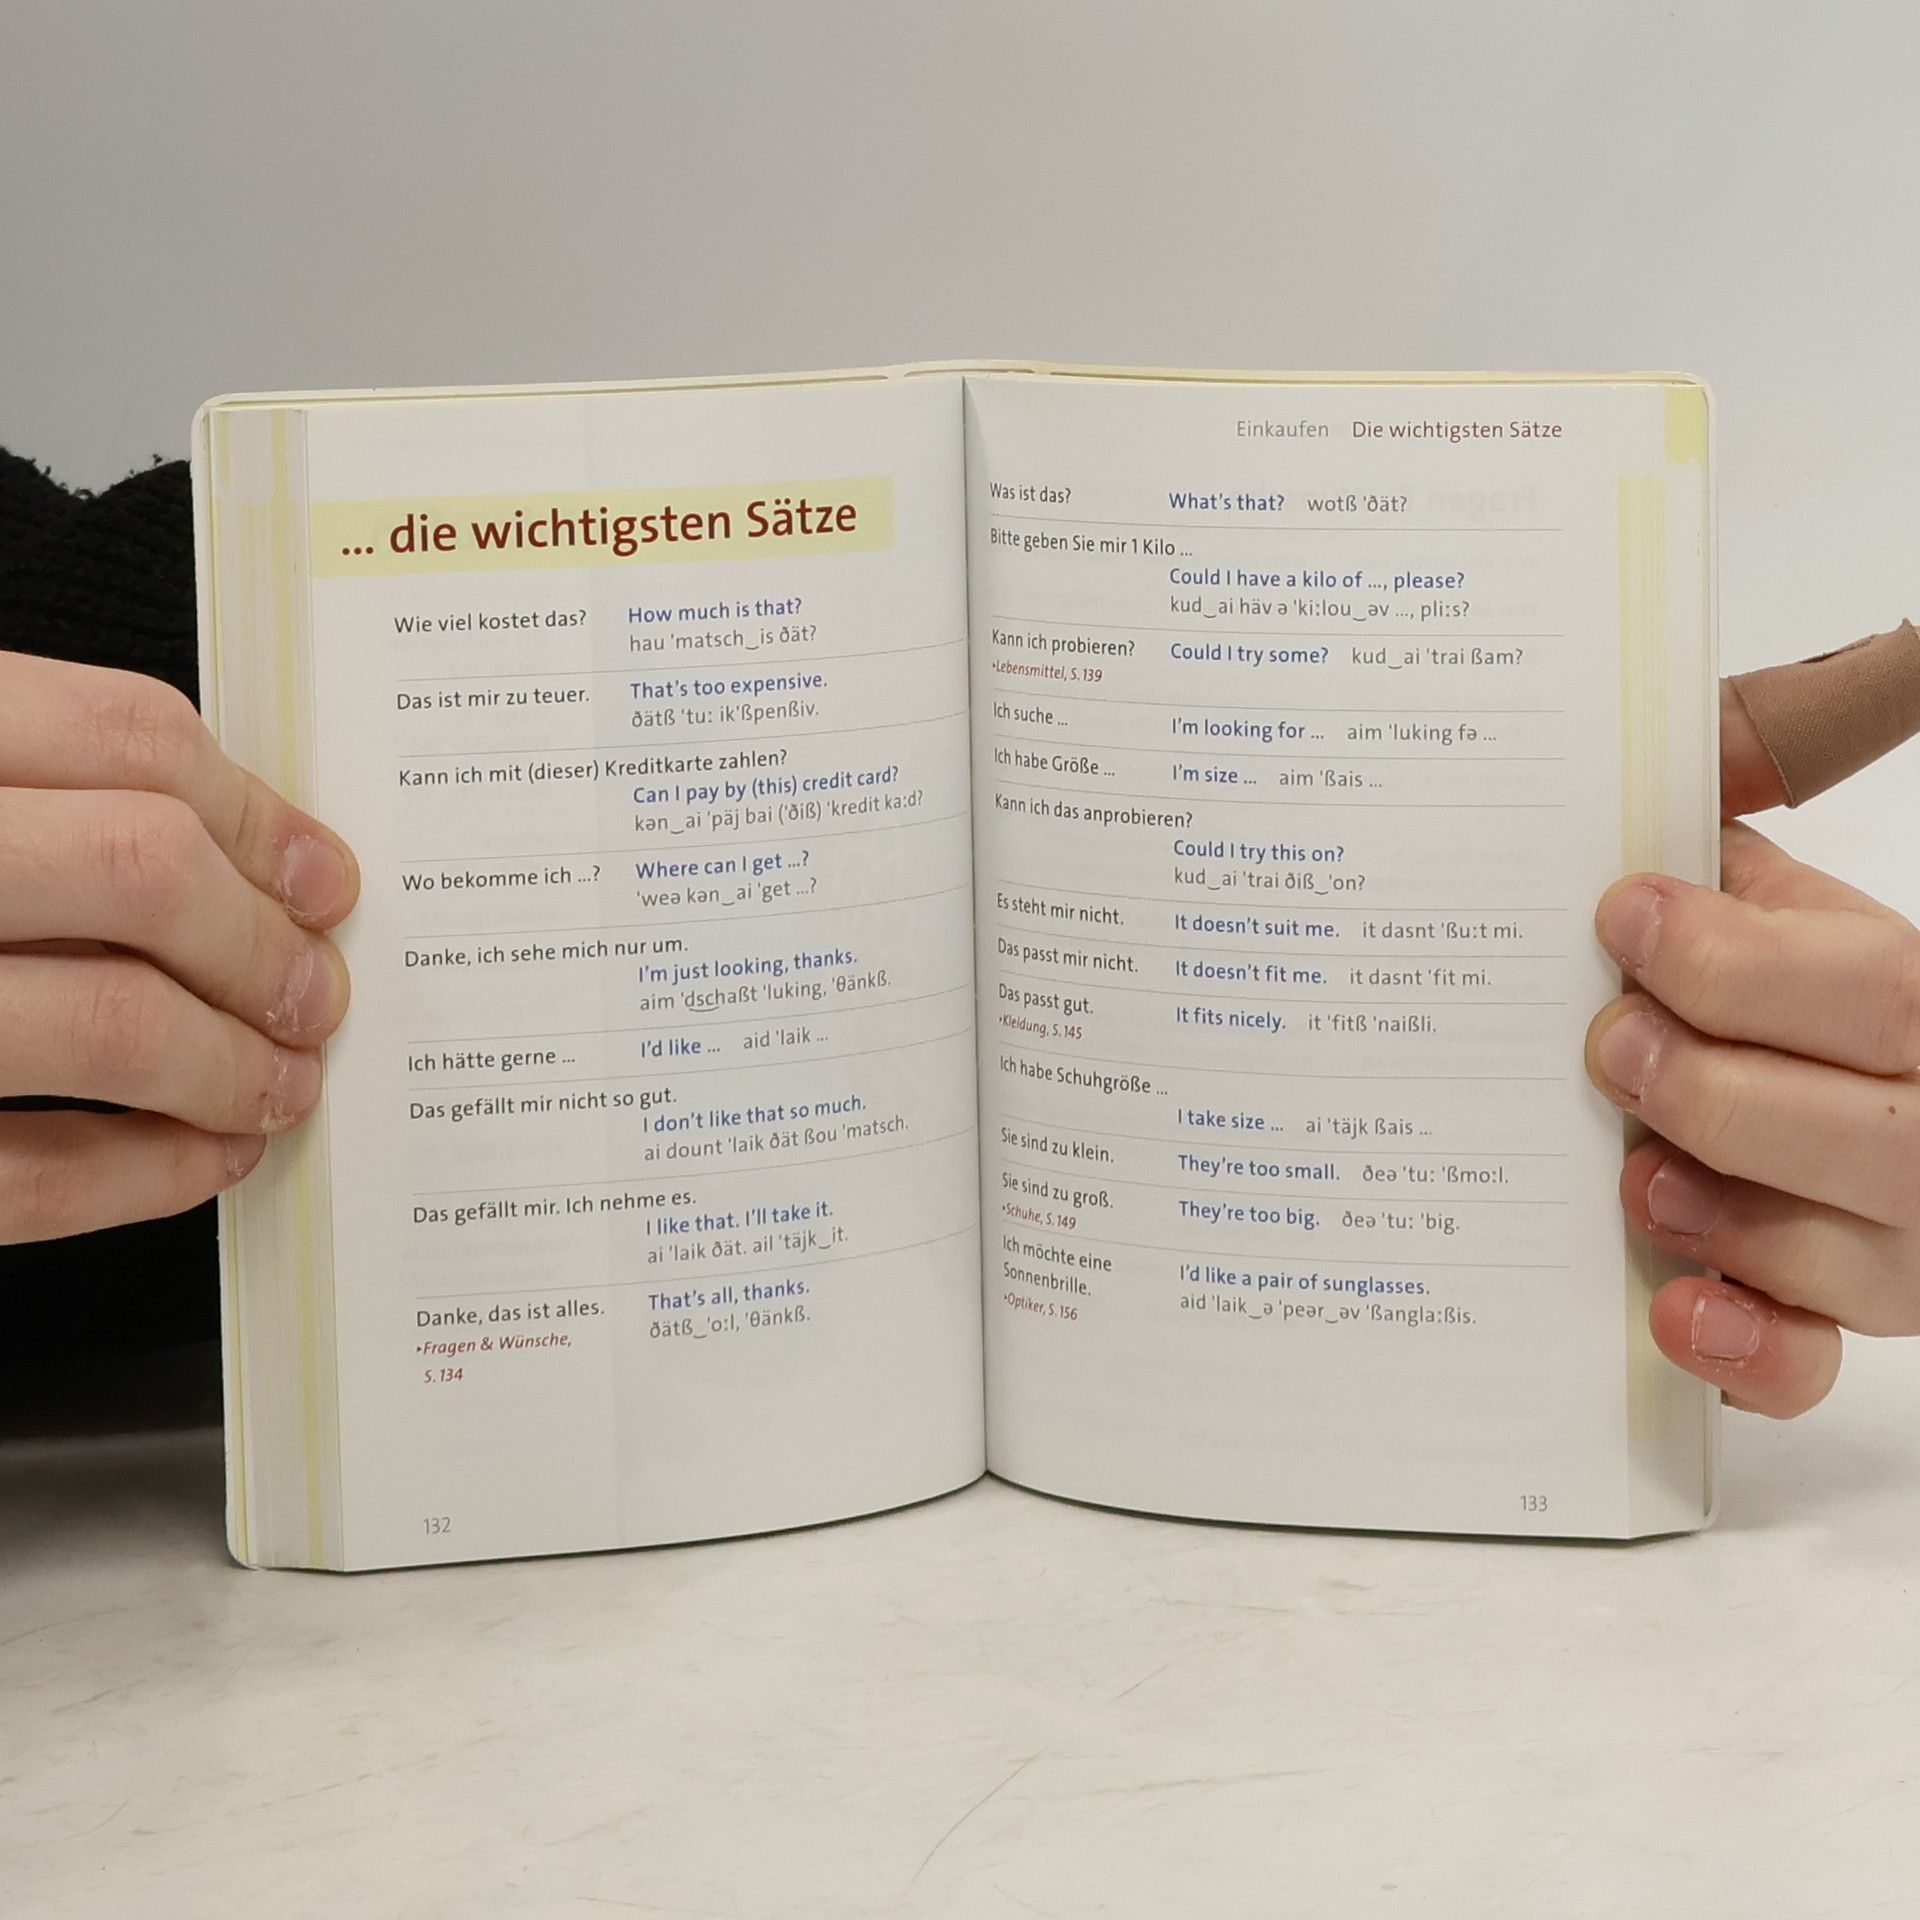 ... die wichtigsten Sätze
Wie viel kostet das? How much is that?
hau 'matsch‿is ðät?
Das ist mir zu teuer. That's too expensive.
ðätß 'tu: ik'ßpenßiv.
Kann ich mit (dieser) Kreditkarte zahlen?
Can I pay by (this) credit card?
kən‿ai 'päj bai ('ðiß) 'kredit ka:d?
Wo bekomme ich ...? Where can I get ...?
'weə kən‿ai 'get ...?
Danke, ich sehe mich nur um.
I'm just looking, thanks.
aim 'dschaßt 'luking, 'θänkß.
Ich hätte gerne ... I'd like ... aid 'laik ...
Das gefällt mir nicht so gut.
I don't like that so much.
ai dount 'laik ðät ßou 'matsch.
Das gefällt mir. Ich nehme es.
I like that. I'll take it.
ai 'laik ðät. ail 'täjk‿it.
Danke, das ist alles. That's all, thanks.
ðätß‿'o:l, 'θänkß.
‣Fragen & Wünsche,
S. 134
132
Einkaufen Die wichtigsten Sätze
Was ist das? What's that? wotß 'ðät?
Bitte geben Sie mir 1 Kilo ...
Could I have a kilo of ..., please?
kud‿ai häv ə 'ki:lou‿əv ..., pli:s?
Kann ich probieren? Could I try some? kud‿ai 'trai ßam?
‣Lebensmittel, S. 139
Ich suche ... I'm looking for ... aim 'luking fə ...
Ich habe Größe ... I'm size ... aim 'ßais ...
Kann ich das anprobieren?
Could I try this on?
kud‿ai 'trai ðiß‿'on?
Es steht mir nicht. It doesn't suit me. it dasnt 'ßu:t mi.
Das passt mir nicht. It doesn't fit me. it dasnt 'fit mi.
Das passt gut. It fits nicely. it 'fitß 'naißli.
‣Kleidung, S. 145
Ich habe Schuhgröße ...
I take size ... ai 'täjk ßais ...
Sie sind zu klein. They're too small. ðeə 'tu: 'ßmo:l.
Sie sind zu groß. They're too big. ðeə 'tu: 'big.
‣Schuhe, S. 149
Ich möchte eine
Sonnenbrille. I'd like a pair of sunglasses.
aid 'laik‿ə 'peər‿əv 'ßangla:ßis.
‣Optiker, S. 156
133